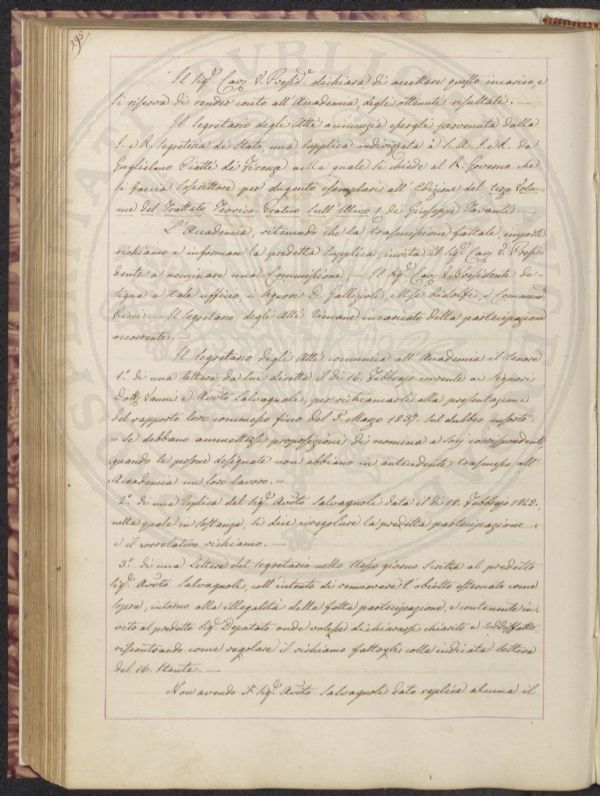 295
Il Sig.r Cav. V. Presid.e dichiara di accettare questo incarico, e
si riserva di render conto all'Accademia, degli ottenuti resultati. —
Il Segretario degli Atti annunzia essergli pervenuta dalla
I. e R. Segreteria di Stato una supplica indirizzata a S. A. I. e R. da
Guglielmo Piatti di Firenze nella quale si chiede al R. Governo che
si faccia soscrittore per dugento esemplari all'Edizione del terzo Volu-
me del Trattato Teorico-Pratico sull'Ulivo, di Giuseppe Tavanti. —
L'Accademia, ritenendo che la trasmissione fattale, importi
richiamo a informare la predetta supplica, invita il Sig.r Cav. V. Presi-
dente a nominare una Commissione. — Il Sig.r Cav. V. Presidente de-
signa a tale ufficio i Signori G. Gallizioli, M.se Ridolfi, e Commend.
Ricci. — Il Segretario degli Atti rimane incaricato della partecipazione
occorrente. —
Il Segretario degli Atti comunica all'Accademia il tenore
1.° di una lettera da lui diretta il dì 16. Febbrajo corrente ai Signori
Dott. Vanni e Avv.to Salvagnoli, per richiamarli alla presentazione
del rapporto loro commesso fino del 5. Marzo 1837. sul dubbio insorto
se debbano ammettersi proposizione di nomina a Socj corrispondenti
quando le persone designate non abbiano in antecedente trasmesso all'
Accademia un loro lavoro. —
2.° di una replica del Sig.r Avv.to Salvagnoli data il dì 18. Febbrajo 1842.
nella quale in sostanza, si dice irregolare la predetta partecipazione
e il correlativo richiamo. —
3.° di una lettera del Segretario nello stesso giorno scritta al predetto
Sig.r Avv.to Salvagnoli, coll'intento di remuovere l'obietto esternato come
sopra, intorno alla illegalità della fatta partecipazione, e contenente in-
vito al predetto Sig.r Deputato onde volesse dichiararsi chiarito e soddisfatto,
riscontrando come regolare il richiamo fattogli colla indicata lettera
del 16. stante. —
Non avendo il Sig.r Avv.to Salvagnoli dato replica alcuna il